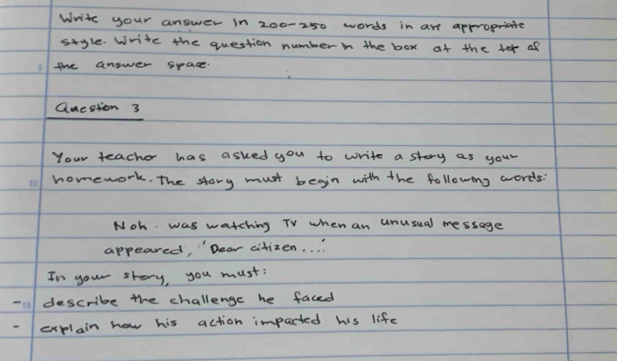 Write your answer in 200-250 words in an appropriate
style. Write the question number in the box at the top of
the answer space.
Question 3
Your teacher has asked you to write a story as your
homework. The story must begin with the following words:
Noh. was watching TV when an unusual message
appeared, "Dear citizen ...."
In your story, you must:
- describe the challenge he faced
- explain how his action impacted his life